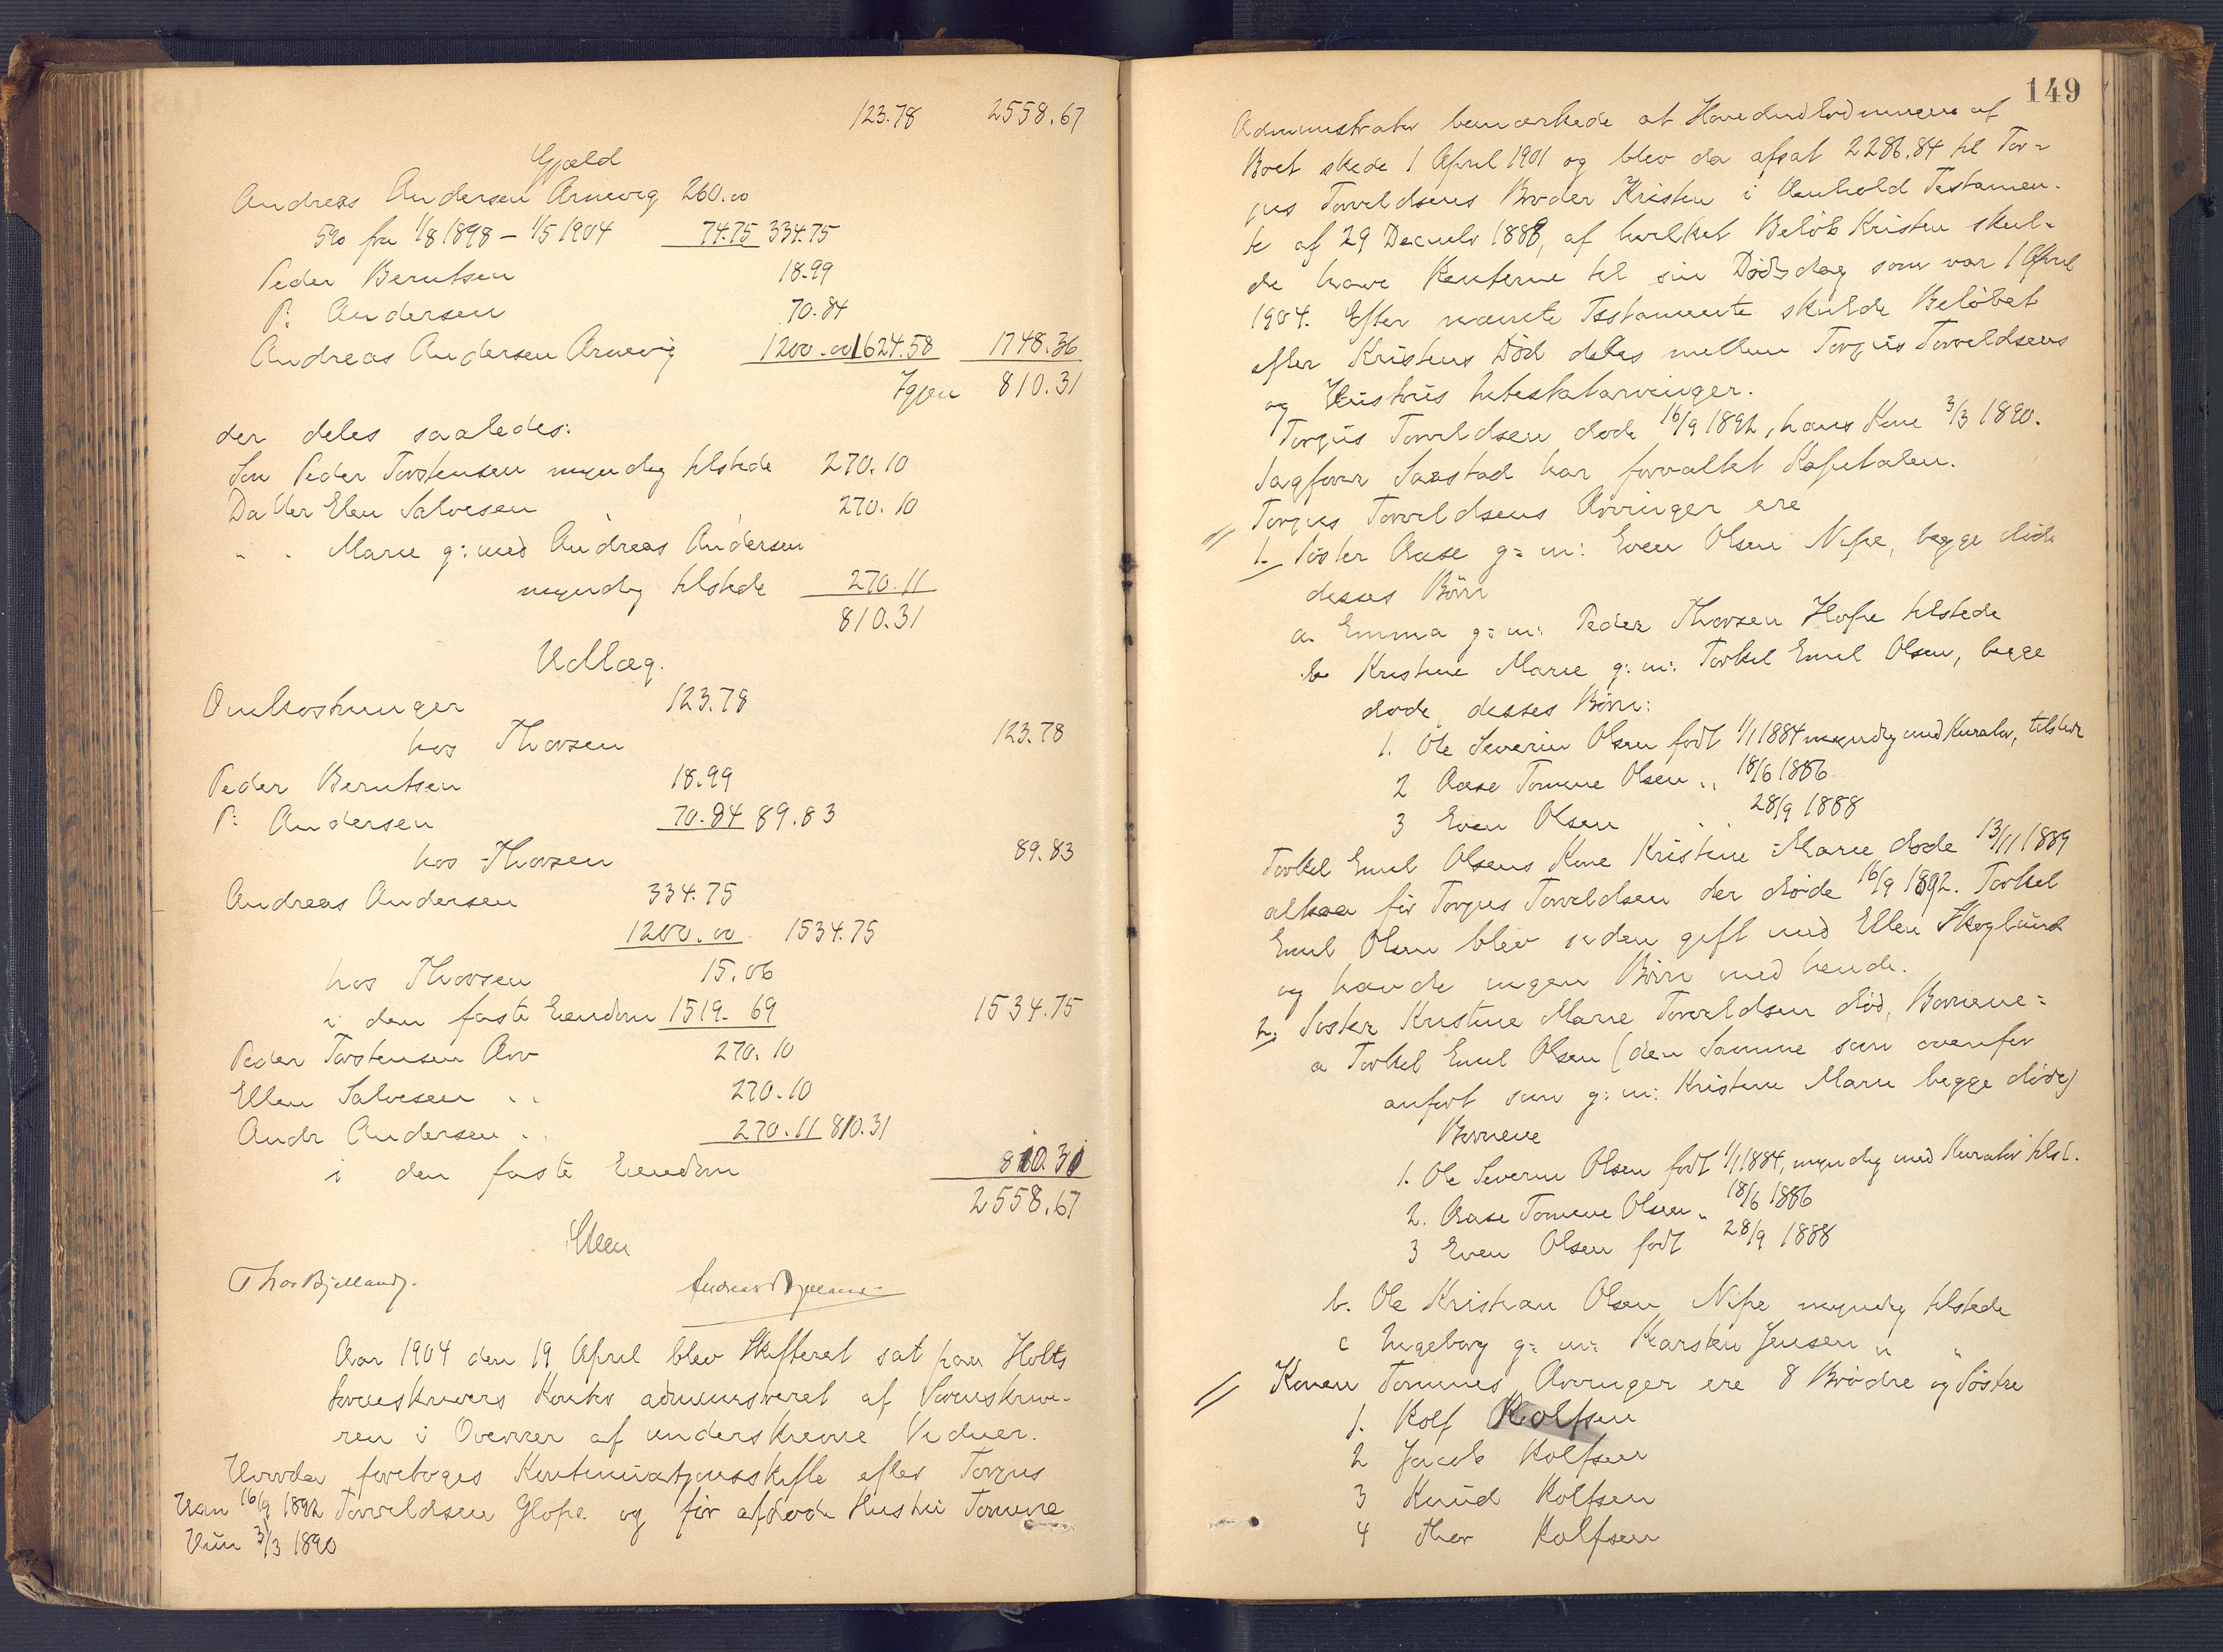 123.78 2558.67
Gjæld
Andreas Andersen Arnevig 260.00
5% fra 1/8 1898 – 1/5 1904 74.75 334.75
Peder Berntsen 18.99
P. Andersen 70.84
Andreas Andersen Arnevig 1200.00 1624.58 1748.36
Igjen 810.31
der deles saaledes:
Søn Peder Torstensen myndig tilstede 270.10
Datter Elen Salvesen 270.10
" " Marie g: med Andreas Andersen
myndig tilstede 270.11
810.31
Udlæg.
Omkostninger 123.78
hos Thorsen 123.78
Peder Berntsen 18.99
P: Andersen 70.84 89.83
hos Thorsen 89.83
Andreas Andersen 334.75
1200.00 1534.75
hos Thorsen 15.06
i den faste Eiendom 1519.69 1534.75
Peder Torstensen Arv 270.10
Ellen Salvesen " 270.10
Andr Andersen " 270.11 810.31
i den faste Eiendom 810.31
2558.67
Thor Bjelland
Aar 1904 den 19 April blev Skifteret sat paa Holts
Sorenskrivers Kontor administreret af Sorenskrive-
ren i Overvær af underskrevne Vidner.
Hvorda foretoges Kontinuationsskifte efter Torjus
Han 16/9 1892 Torvildsen Glope og før afdøde Hustru Tomine
Hun 3/3 1890
149
Administrator bemærkede at Hovedudlodningen af
Boet skede 1 April 1901 og blev da afsat 2286.84 til Tor-
jus Torvildsens Broder Kristen i Henhold Testamen-
te af 29 Decmbr 1888, af hvilket Beløb Kristen skul-
de have Renterne til sin Dødsdag som var 1 April
1904. Efter nævnte Testamente skulde Beløbet
efter Kristens Død deles mellem Torjus Torvildsens
og Hustrus Intestatarvinger.
Torjus Torvildsen døde 16/9 1892, hans Kone 3/3 1890.
Sagfører Saastad har forvaltet Kapitalen.
Torjus Torvildsens Arvinger ere
1. Søster Aase g: m: Even Olsen Nipe, begge døde
desses Børn
a. Emma g: m: Peder Thorsen Hope tilstede
b Kristine Marie g: m: Torkel Emil Olsen, begge
døde, desses Børn:
1. Ole Severin Olsen født 1/1 1884 myndig med Kurator, tilstede
2 Aase Tomine Olsen " 18/6 1886
3 Even Olsen " 28/9 1888
Torkel Emil Olsens Kone Kristine Marie døde 13/11 1889
altsaa før Torjus Torvildsen der døde 16/9 1892. Torkel
Emil Olsen blev siden gift med Ellen Skoglund
og havde ingen Børn med hende.
2. Søster Kristine Marie Torvildsen død, Børnene:
a Torkel Emil Olsen (den Samme som ovenfor
anført som g: m: Kristine Marie begge døde)
Børnene
1. Ole Severin Olsen født 1/1 1884, myndig med Kurator tilst.
2. Aase Tomine Olsen " 18/6 1886
3 Even Olsen født 28/9 1888
b. Ole Kristian Olsen Nipe myndig tilstede
c Ingeborg g: m: Karsten Jensen " "
Konen Tomines Arvinger ere 8 Brødre og Søstre
1. Rolf Rolfsen
2 Jacob Rolfsen
3 Knud Rolfsen
4 Thor Rolfsen